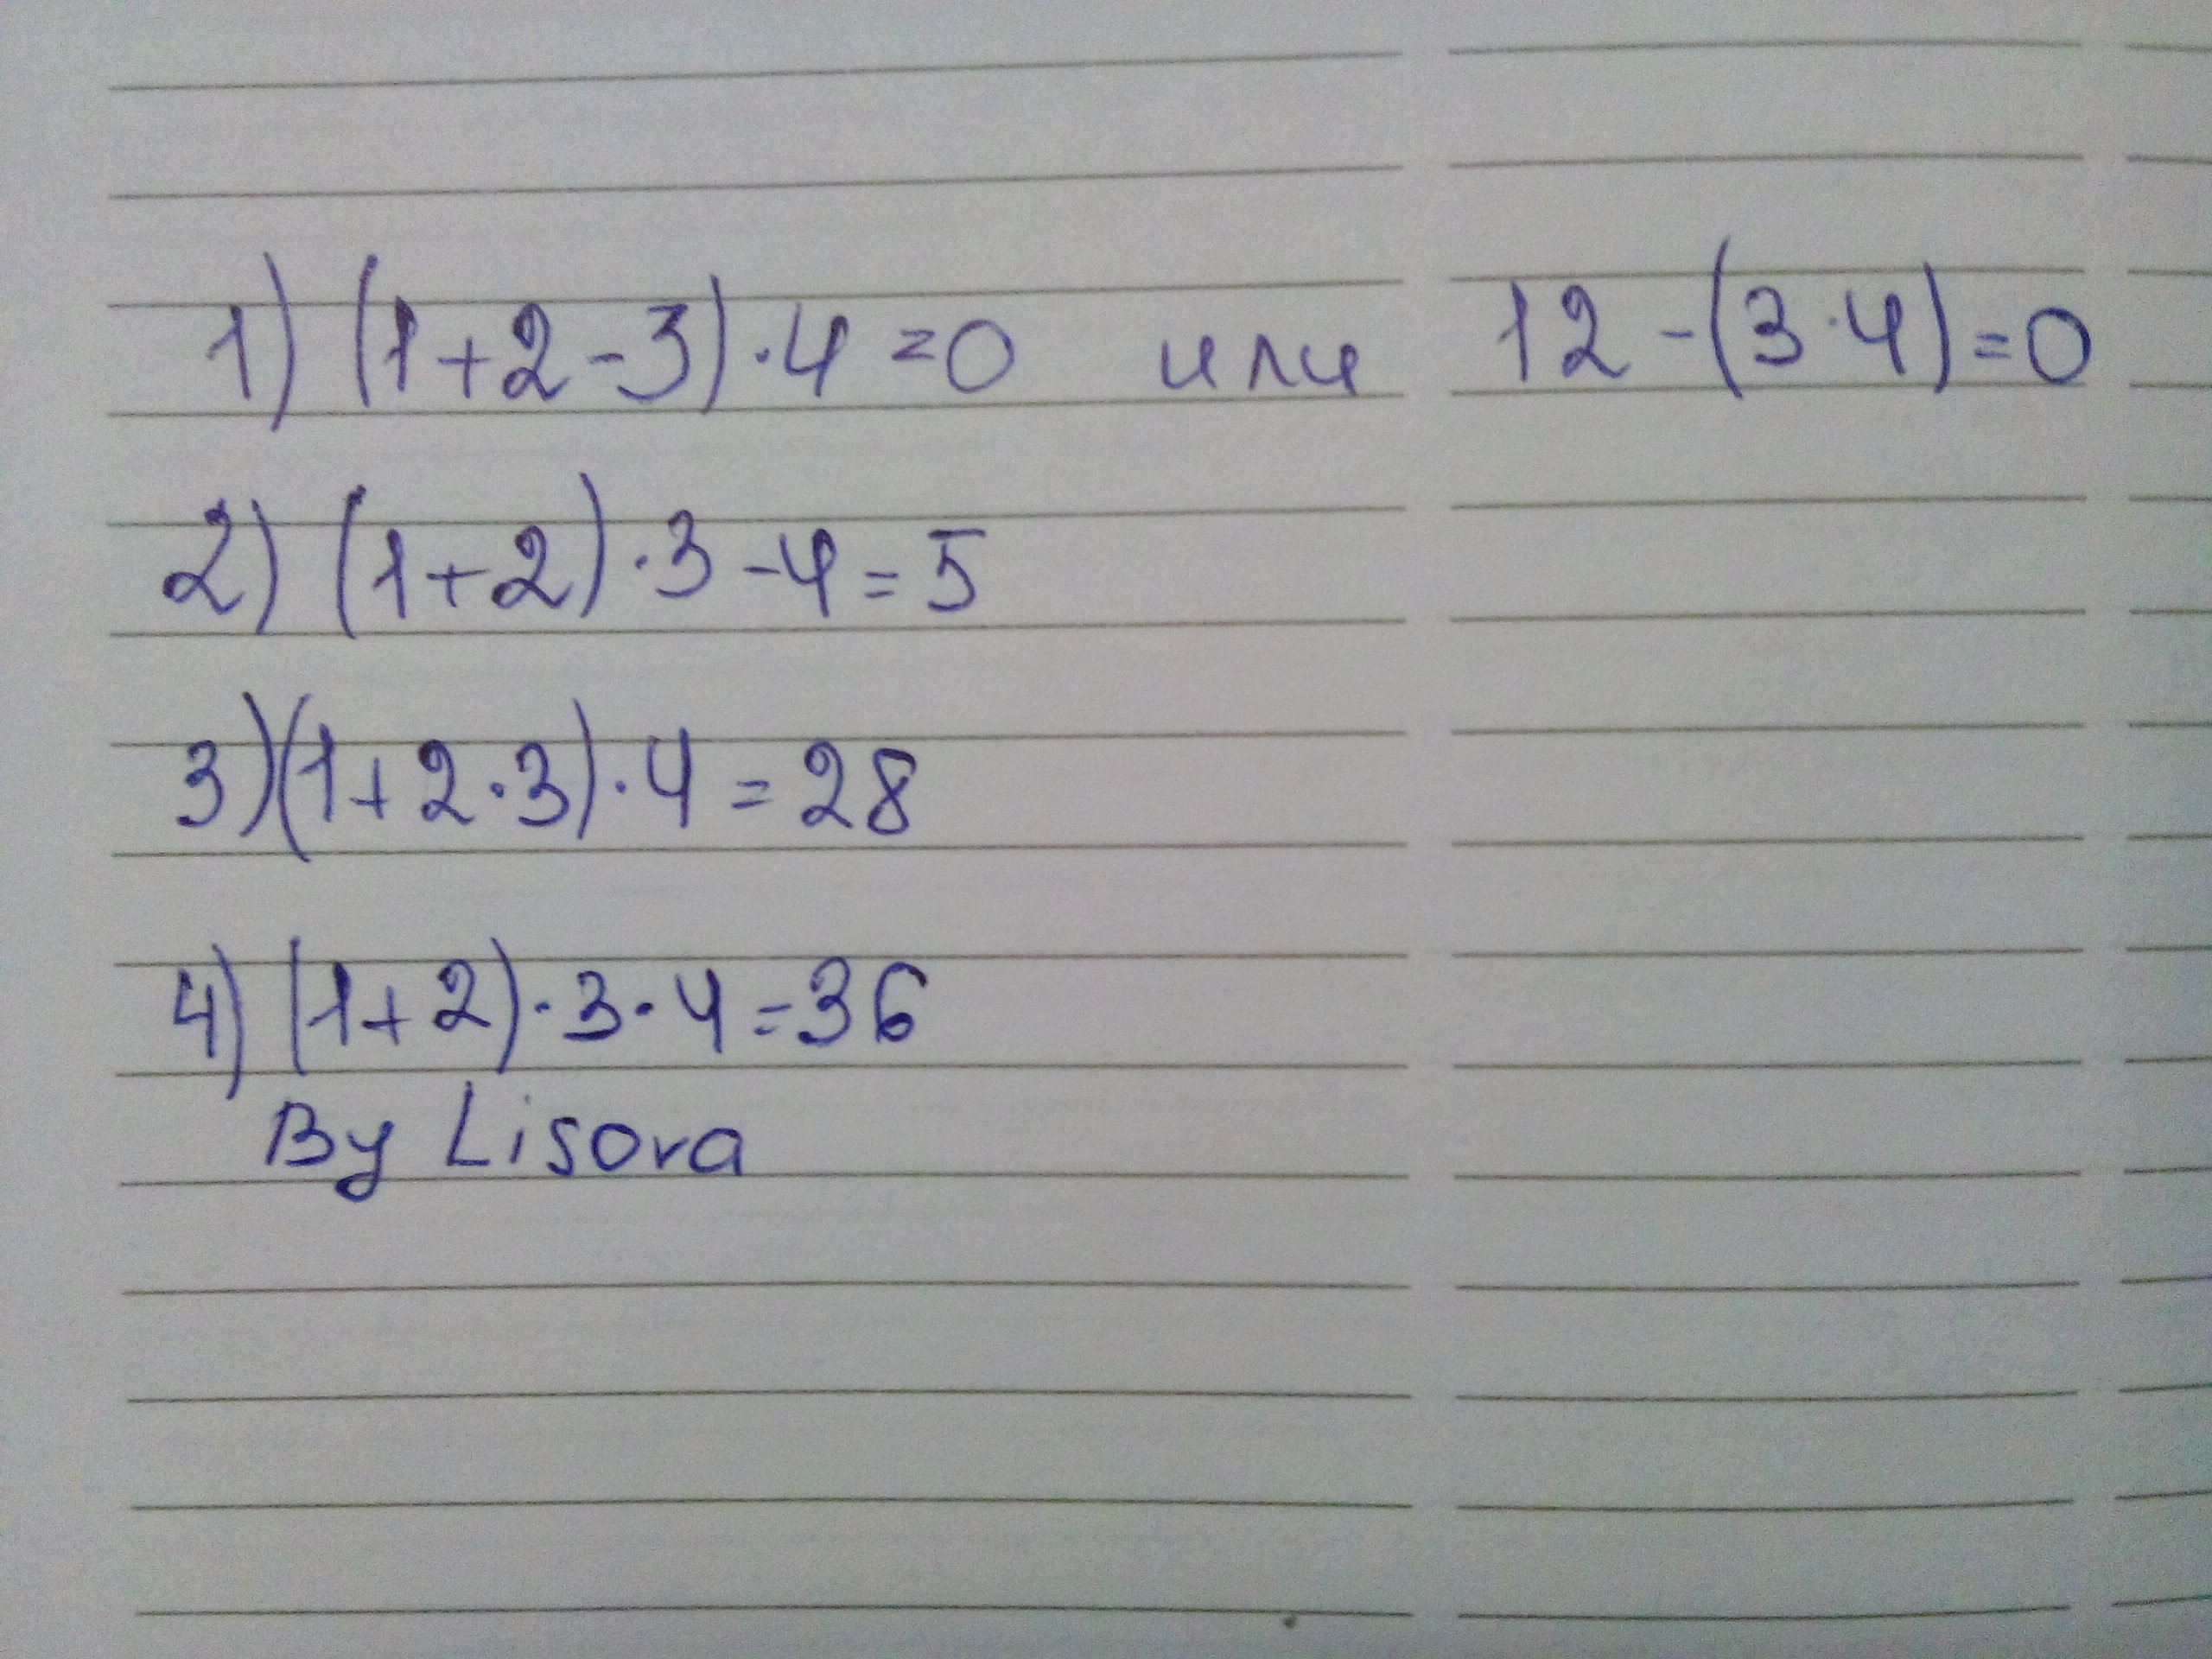 1) (1+2-3)·4=0 или 12-(3·4)=0
2) (1+2)·3-4=5
3)(1+2·3)·4=28
4) (1+2)·3·4=36
By Lisova